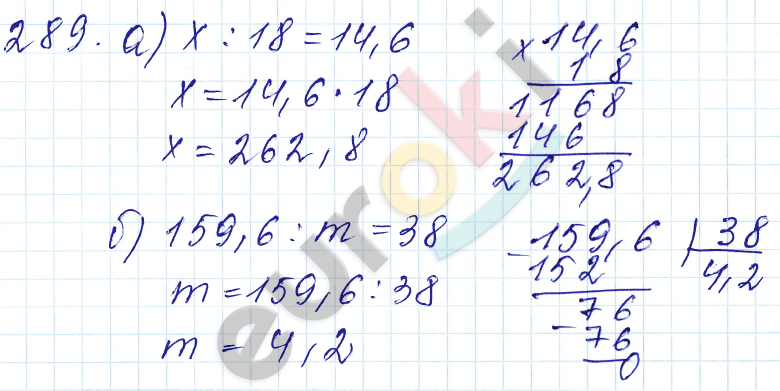 289. а) x : 18 = 14,6
x = 14,6 · 18
x = 262,8
× 14,6
18
1168
146
262,8
б) 159,6 : m = 38
m = 159,6 : 38
m = 4,2
- 159,6 | 38
152 4,2
76
- 76
0
euroki